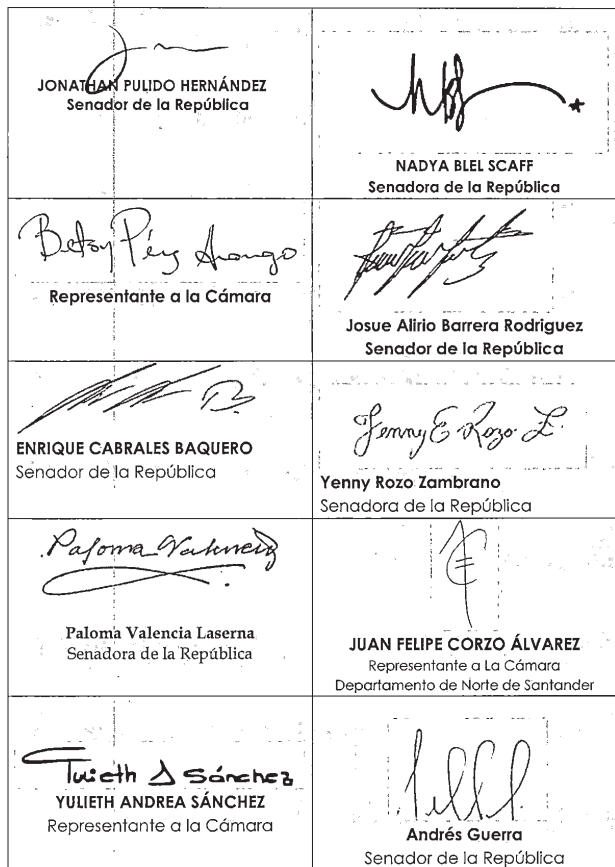 JONATHAN PULIDO HERNÁNDEZ
Senador de la República
NADYA BLEL SCAFF
Senadora de la República
Betsy Pérez Arango
Representante a la Cámara
Josue Alirio Barrera Rodriguez
Senador de la República
ENRIQUE CABRALES BAQUERO
Senador de la República
Yenny E Rozo Z.
Yenny Rozo Zambrano
Senadora de la República
Paloma Valencia
Paloma Valencia Laserna
Senadora de la República
JUAN FELIPE CORZO ÁLVAREZ
Representante a La Cámara
Departamento de Norte de Santander
Yulieth A Sánchez
YULIETH ANDREA SÁNCHEZ
Representante a la Cámara
Andrés Guerra
Senador de la República